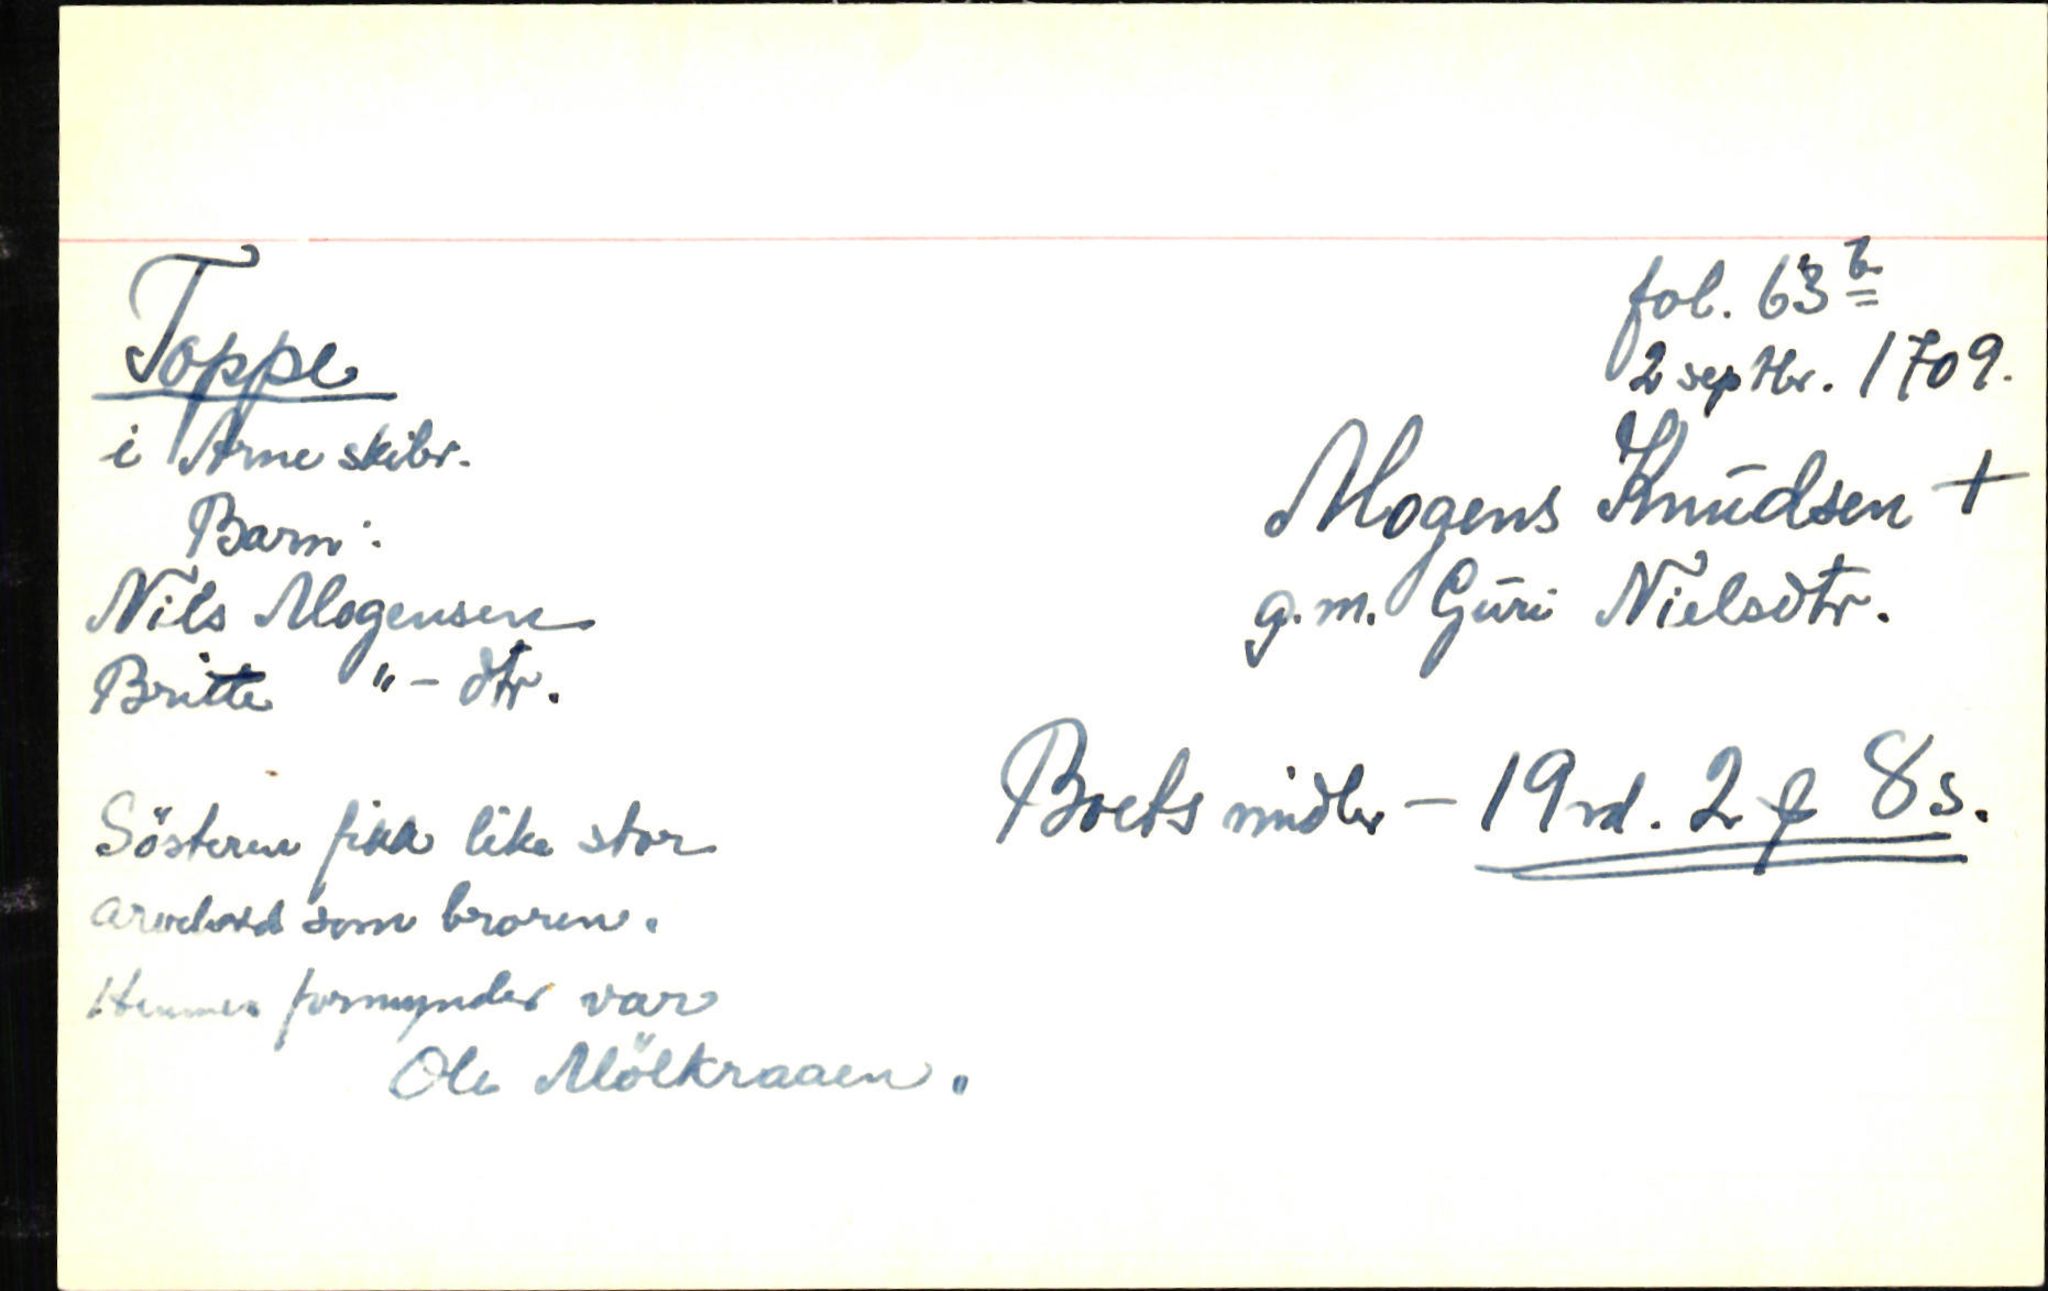 Toppe
i Arne skibr.
Barn:
Nils Mogensen
Britte "- dtr.
Søsteren fikk like stor
som broren.
Hennes formynder var
Ole Mölkraaen.
fol. 63 b
2 septbr. 1709.
Mogens Knudsen +
g.m. Guri Nielsdtr.
Boets midler - 19 rd. 2 8 s.